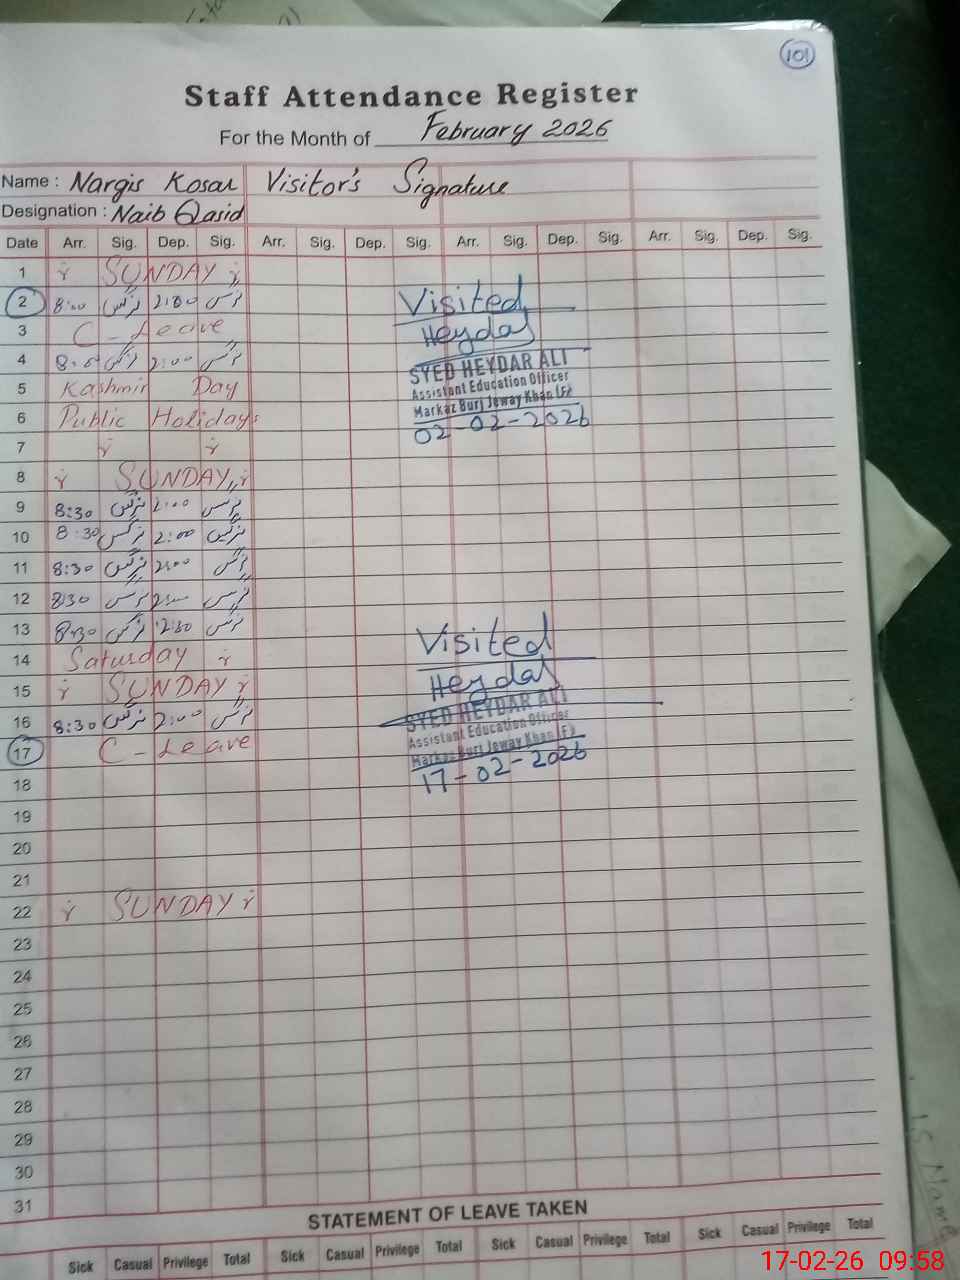 101
Staff Attendance Register
For the Month of February 2026
Name : Nargis Kosar Visitor's Signature
Designation : Naib Qasid
Date Arr. Sig. Dep. Sig. Arr. Sig. Dep. Sig. Arr. Sig. Dep. Sig. Arr. Sig. Dep. Sig.
1 SUNDAY
2 8:00 نرگس 2:00 نرگس Visited
3 C - Leave Heydar
4 نرگس 2:00 نرگس SYED HEYDAR ALI
5 Kashmir Day Assistant Education Officer
6 Public Holidays Markaz Burj Jeway Khan (F)
02-02-2026
7
8 SUNDAY
9 8:30 نرگس 2:00 نرگس
10 8:30 نرگس 2:00 نرگس
11 8:30 نرگس 2:00 نرگس
12 8:30 نرگس نرگس
13 8:30 نرگس 12:30 نرگس Visited
14 Saturday
15 SUNDAY Heydar
16 8:30 نرگس 2:00 نرگس SYED HEYDAR ALI
Assistant Education Officer
17 C - Leave Markaz Burj Jeway Khan (F)
18 17-02-2026
19
20
21
22 SUNDAY
23
24
25
26
27
28
29
30
31
STATEMENT OF LEAVE TAKEN
Sick Casual Privilege Total Sick Casual Privilege Total Sick Casual Privilege Total Sick Casual Privilege Total
17-02-26 09:58